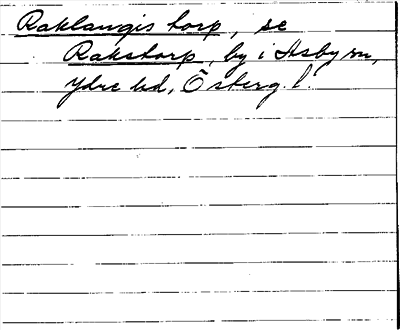 Raklaugis torp, se
Rakstorp, by i Asby sn,
Ydre hd, Österg. l.